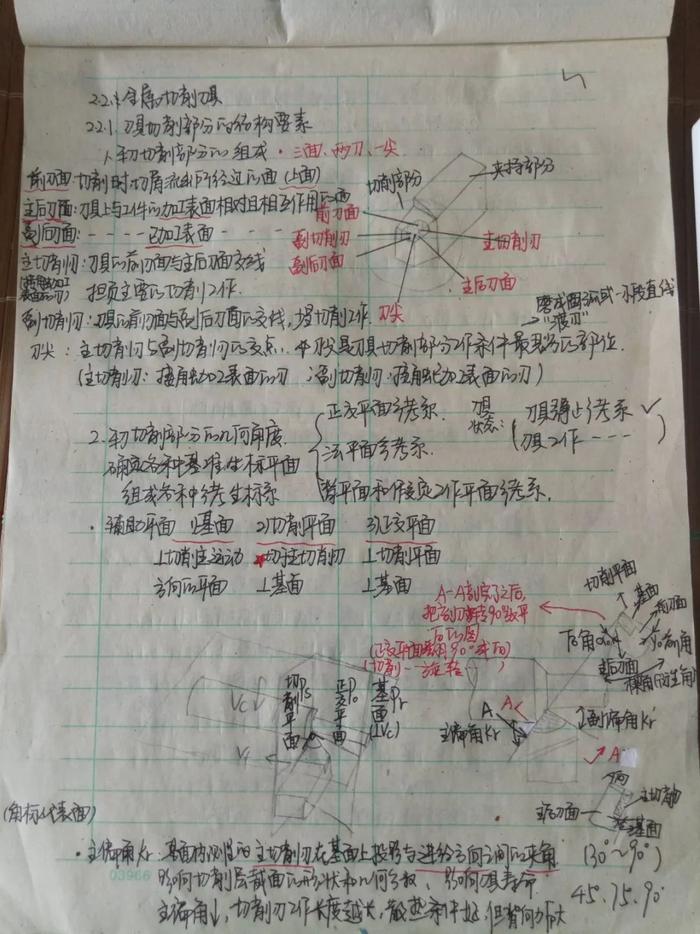 2.2.1 金属切削刀具
2.2.1. 刀具切削部分的结构要素
1、车刀切削部分的组成 · 三面、两刃、一尖
前刀面:切削时切屑流出所经过的面(上面)
切削部分
夹持部分
主后刀面:刀具上与工件的加工表面相对且相互作用的面
前刀面
副后刀面:- - - - 已加工表面 - - -
副切削刃
主切削刃
主切削刃:刀具的前刀面与主后刀面交线
副后刀面
担负主要的切削工作.
主后刀面
副切削刃:刀具前刀面与副后刀面的交线,
切削工作.
刀尖
磨成圆弧或一小段直线
刀尖:主切削刃与副切削刃的交点.
是刀具切削部分工作条件最恶劣的部位.
(主切削刃:接触加工表面的刃;副切削刃:接触已加工表面的刃)
2.车刀切削部分的几何角度
正交平面参考系.
刀具状态:
刀具静止参考系 ✓
确定各种基准坐标平面
法平面参考系
刀具工作 - - - -
组成各种参考坐标系
背平面和假定工作平面参考系.
· 辅助平面 1)基面 2)切削平面 3)正交平面
⊥切削主运动
切于主切削刃
⊥切削平面
方向的平面
⊥基面
⊥基面
切削平面
基面
A-A剖完了之后,
把
转90°放平
后的图
前刀面
后角α₀
γ₀前角
主后刀面
楔角(衍生角)
切削平面 Ps
正交平面 Po
基面 Pr (⊥Vc)
Vc
Vf
A
A
主偏角Kr
副偏角Kr′
A
主后刀面
基面
(角标代表面)
· 主偏角Kr:基面内测量的主切削刃在基面上投影与进给方向之间的夹角 (30°~90°)
影响切削层截面的形状和几何参数、影响刀具寿命
45. 75. 90°
主偏角↓,切削刃工作长度越长,散热条件好,但背向力大
03966